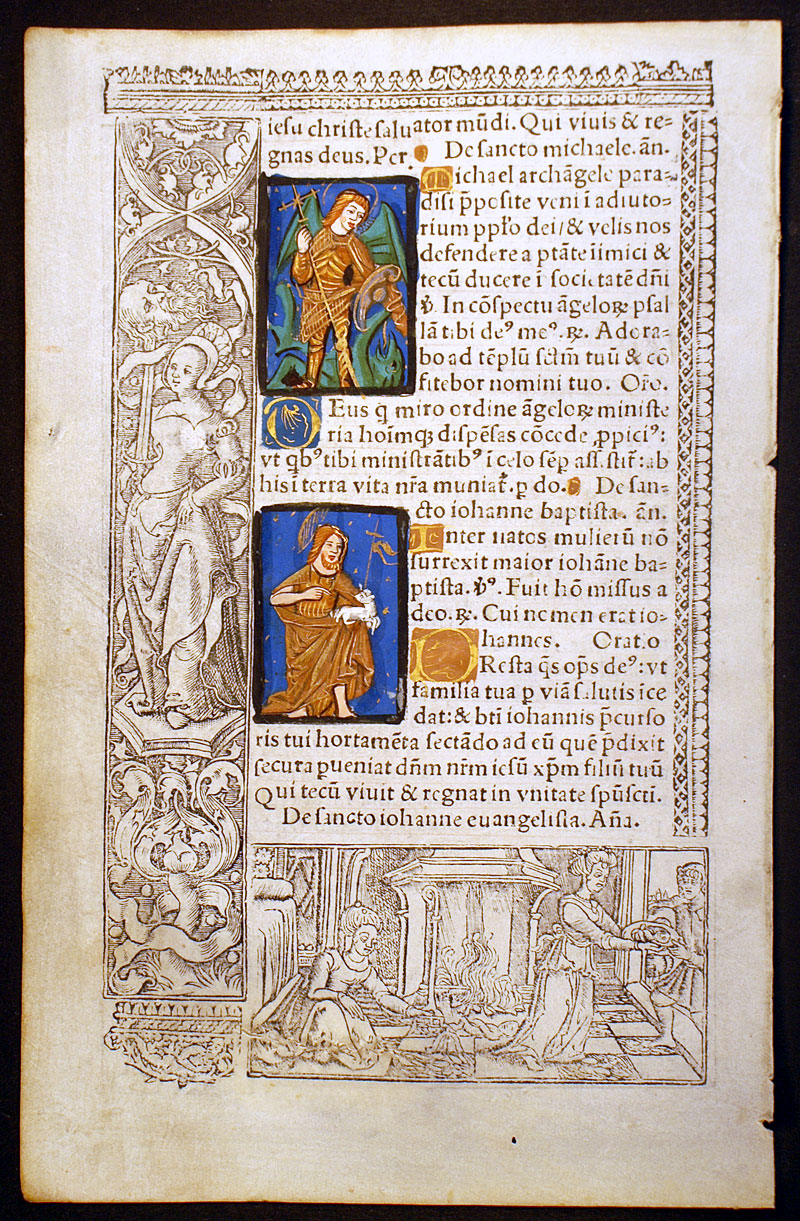 iesu christe saluator mūdi. Qui viuis & re=
gnas deus. Per. De sancto michaele. añ.
Michael archāgele para=
disi p̄posite veni ī adiuto=
rium pp̄lo dei/& velis nos
defendere a ptāte īimici &
tecū ducere ī societatē dn̄i
℣. In cōspectu āgeloꝝ psal
lā tibi deꝰ meꝰ. ℟. Adora=
bo ad tēplū sctm̄ tuū & cō
fitebor nomini tuo. Or̄o.
DEus q̄ miro ordine āgeloꝝ ministe
ria hoīmqꝫ dispēsas cōcede ꝓpiciꝰ:
vt qb̄ꝰ tibi ministrātibꝰ ī celo sēꝑ ass. stit̄: ab
his ī terra vita nr̄a muniat̄. ꝑ do. De san=
cto iohanne baptista. añ.
Inter natos mulierū nō
surrexit maior iohāne ba=
ptista. ℣ꝰ. Fuit hō missus a
deo. ℟. Cui nomen erat io=
hannes. Oratio
PResta q̄s op̄s deꝰ: vt
familia tua ꝑ viā salutis īce
dat: & btī iohannis p̄curso
ris tui hortamēta sectādo ad eū quē p̄dixit
secura ꝑueniat dn̄m nr̄m iesū xp̄m filiū tuū
Qui tecū viuit & regnat in vnitate spūscti.
De sancto iohanne euangelista. Añа.